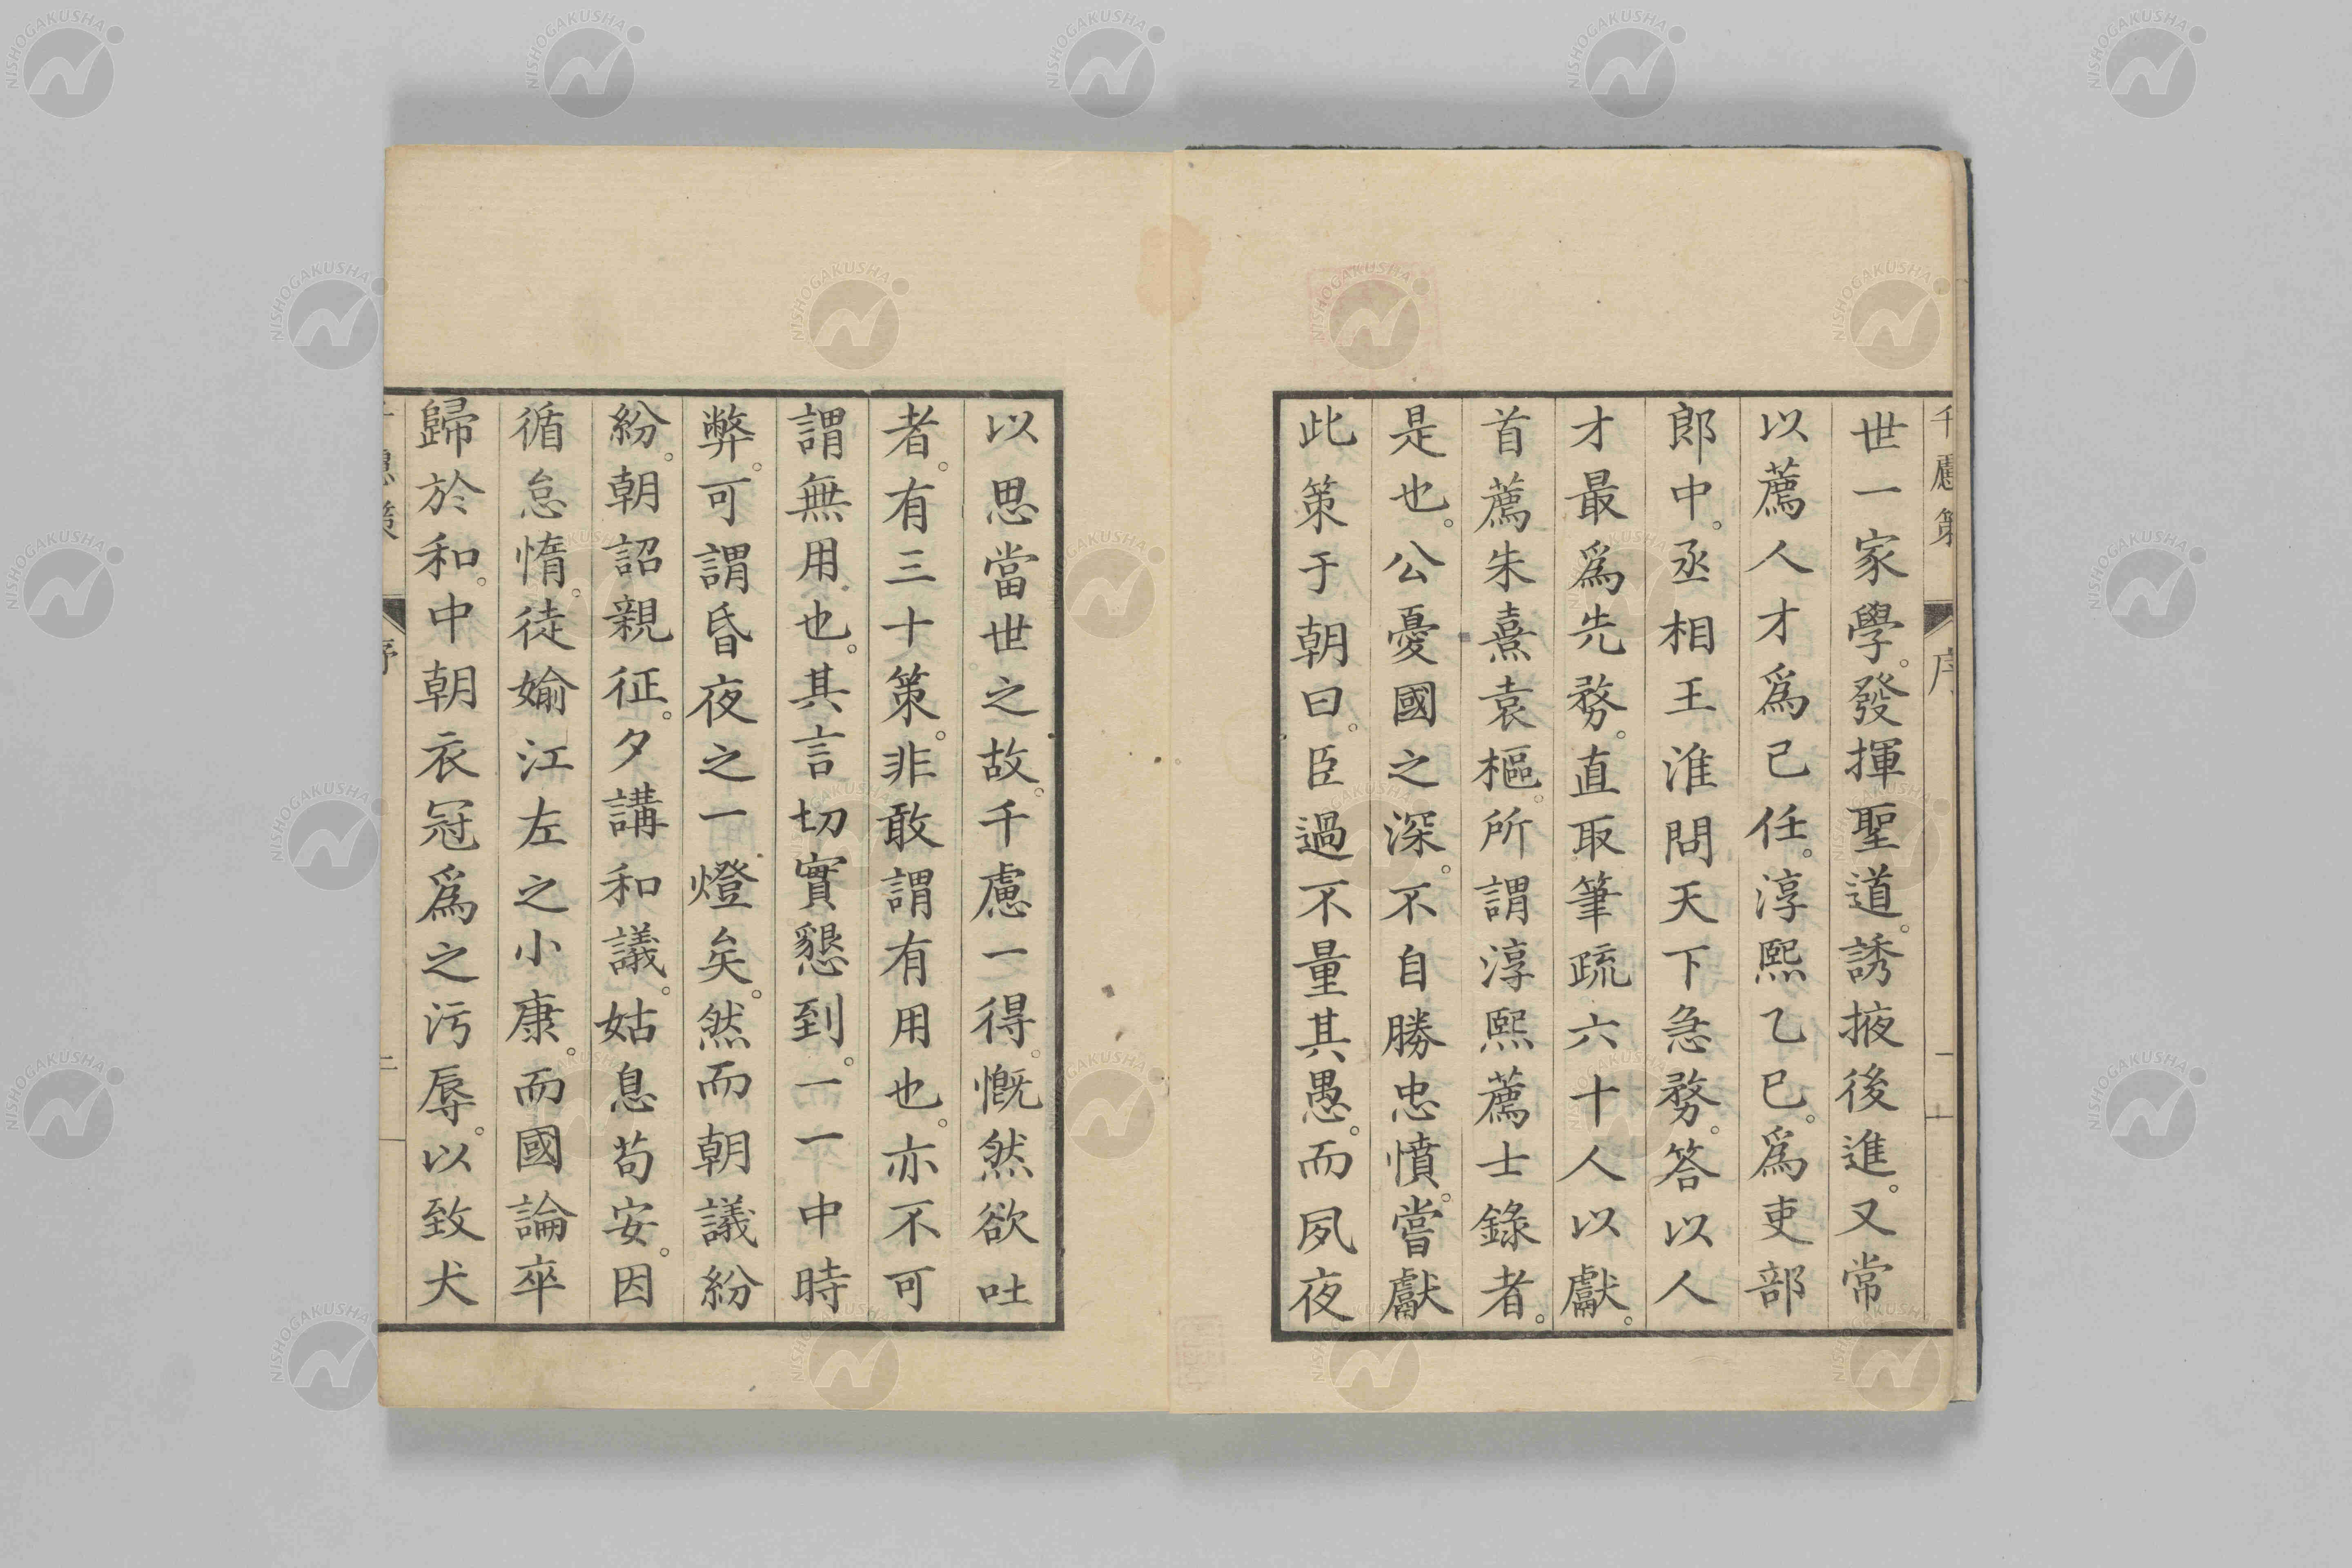 千慮策 序 一
世一家學。發揮聖道。誘掖後進。又常
以薦人才爲己任。淳熙乙巳。爲吏部
郎中。丞相王淮問天下急務。答以人
才最爲先務。直取筆疏六十人以獻。
首薦朱熹袁樞。所謂淳熙薦士錄者。
是也。公憂國之深。不自勝忠憤。嘗獻
此策于朝曰。臣過不量其愚。而夙夜
以思當世之故。千慮一得。慨然欲吐
者。有三十策。非敢謂有用也。亦不可
謂無用也。其言切實懇到。一一中時
弊。可謂昏夜之一燈矣。然而朝議紛
紛。朝詔親征。夕講和議。姑息苟安。因
循怠惰。徒媮江左之小康。而國論卒
歸於和。中朝衣冠爲之污辱。以致犬
NISHOGAKUSHA